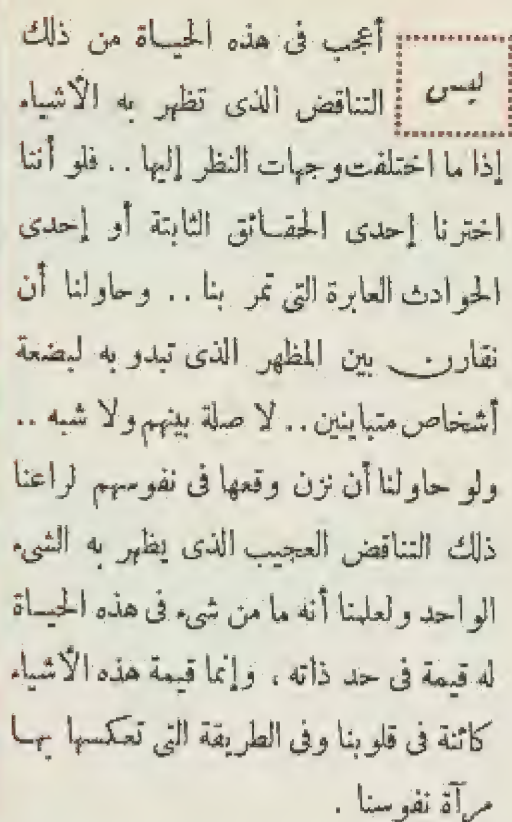 ليس
أعجب فى هذه الحيـاة من ذلك
التناقض الذى تظهر به الأشياء
إذا ما اختلفت وجهات النظر إليها .. فلو أننا
اخترنا إحدى الحقـائق الثابتة أو إحدى
الحوادث العابرة التى تمر بنا .. وحاولنا أن
نقارن بين المظهر الذى تبدو به لبضعة
أشخاص متباينين .. لا صلة بينهم ولا شبه ..
ولو حاولنا أن نزن وقعها فى نفوسهم لراعنا
ذلك التناقض العجيب الذى يظهر به الشىء
الواحد ولعلمنا أنه ما من شىء فى هذه الحيـاة
له قيمة فى حد ذاته ، وإنما قيمة هذه الأشياء
كائنة فى قلوبنا وفى الطريقة التى تعكسها بهـا
مرآة نفوسنا .